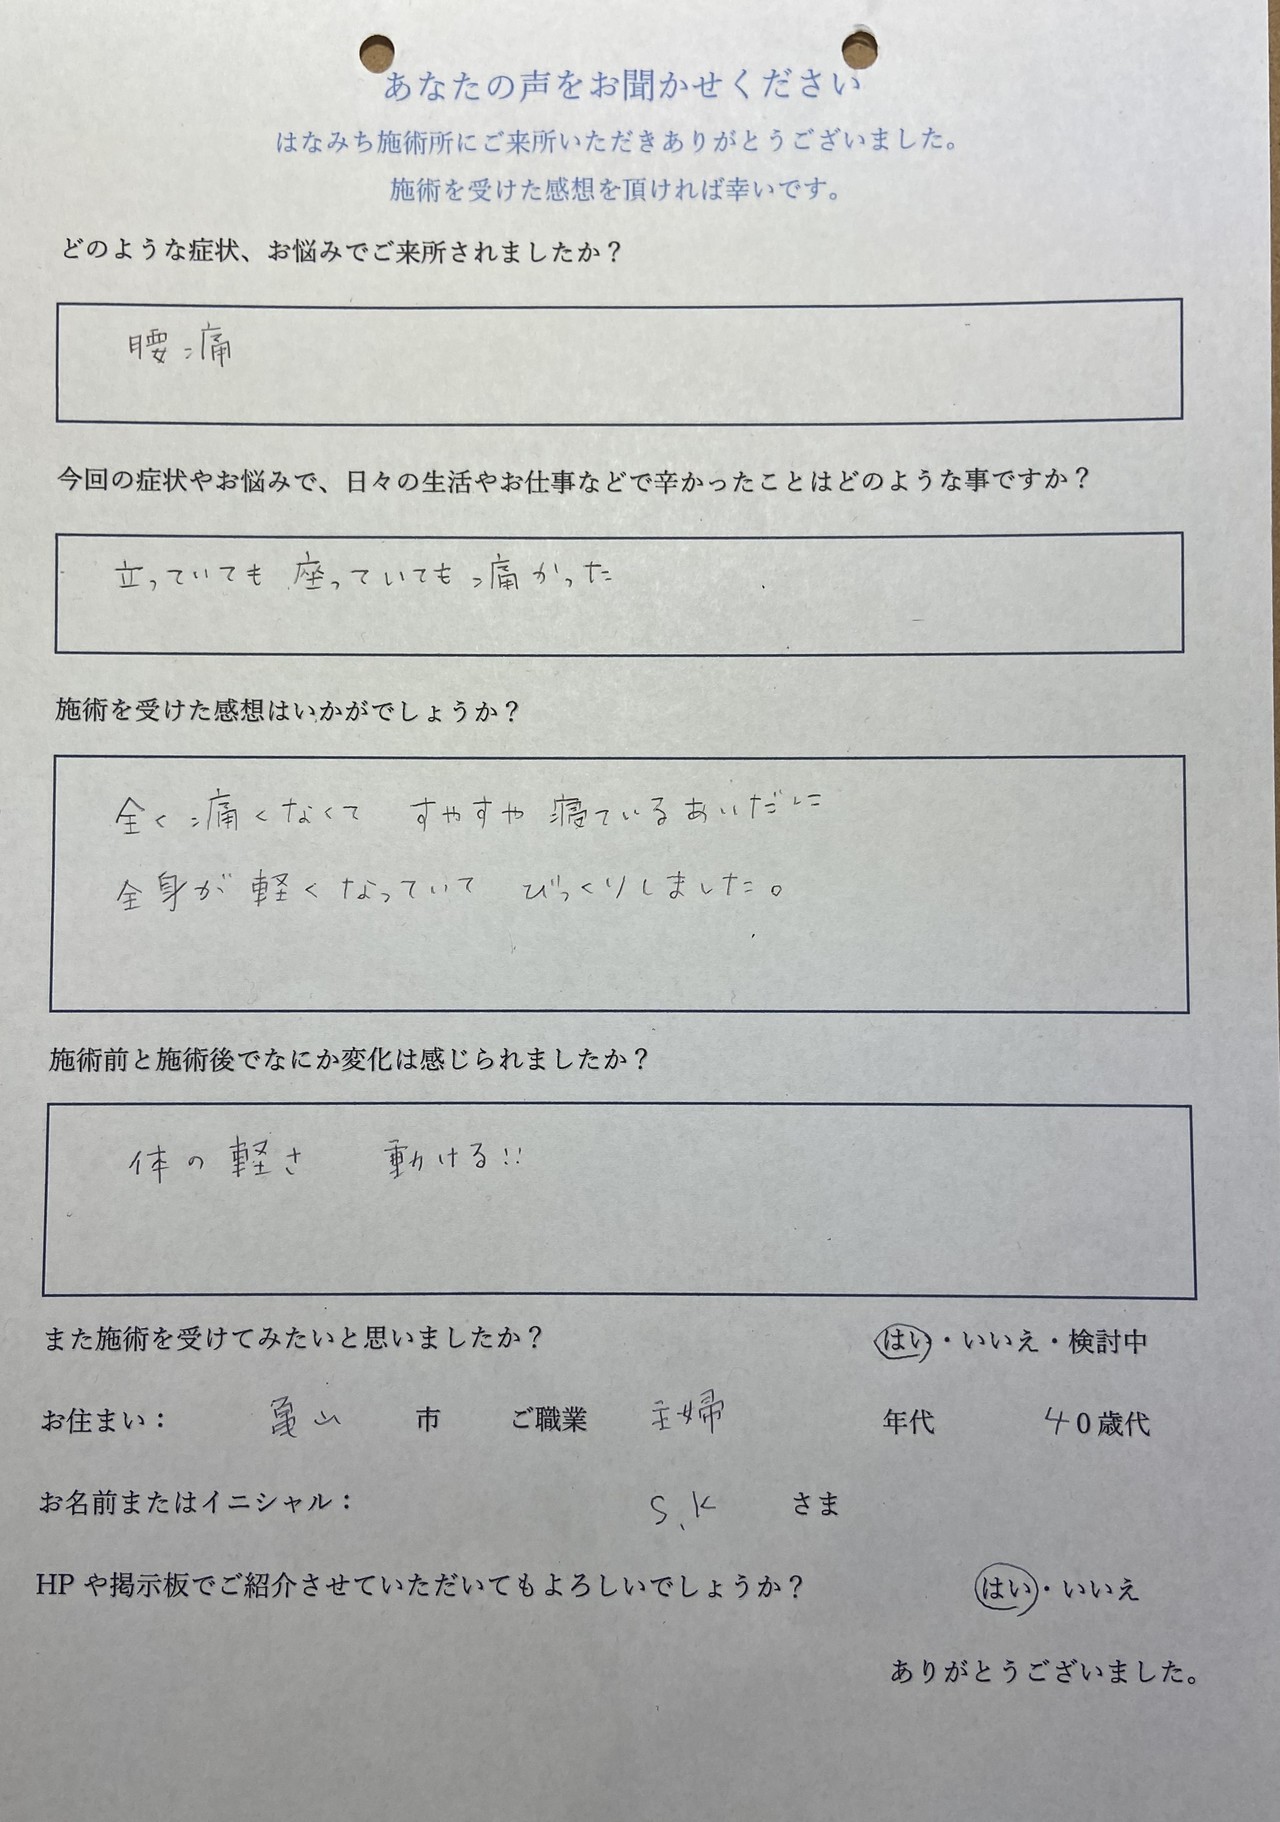 あなたの声をお聞かせください
はなみち施術所にご来所いただきありがとうございました。
施術を受けた感想を頂ければ幸いです。
どのような症状、お悩みでご来所されましたか？
腰痛
今回の症状やお悩みで、日々の生活やお仕事などで辛かったことはどのような事ですか？
立っていても 座っていても 痛かった
施術を受けた感想はいかがでしょうか？
全く痛くなくて すやすや寝ているあいだに
全身が軽くなっていて びっくりしました。
施術前と施術後でなにか変化は感じられましたか？
体の軽さ 動ける!!
また施術を受けてみたいと思いましたか？ はい・いいえ・検討中
お住まい： 亀山 市 ご職業 主婦 年代 40歳代
お名前またはイニシャル： S.K さま
HPや掲示板でご紹介させていただいてもよろしいでしょうか？ はい・いいえ
ありがとうございました。